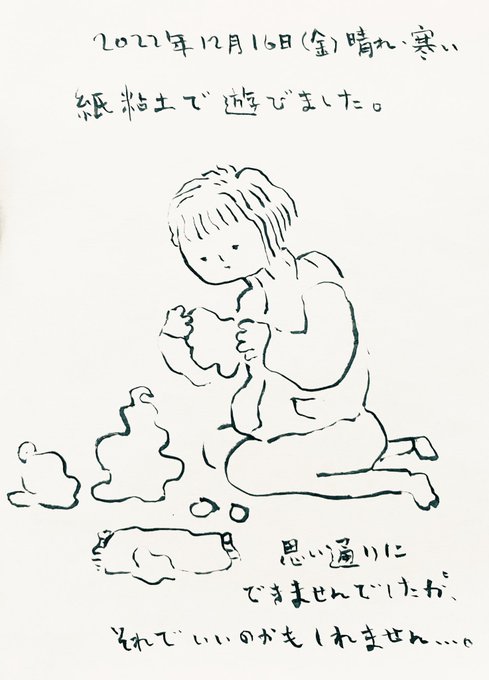 2022年12月16日(金)晴れ・寒い
紙粘土で遊びました。
思い通りに
できませんでしたが、
それでいいのかもしれません...。